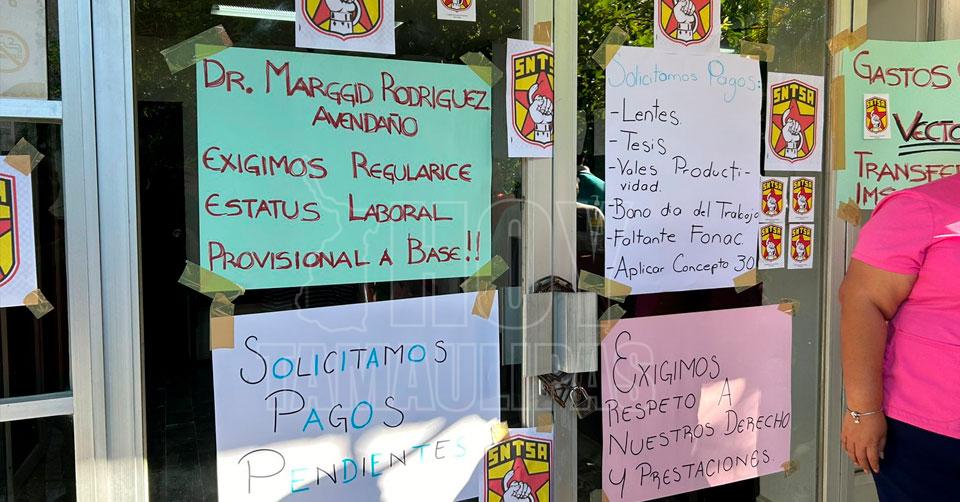 DR. MARGGID RODRIGUEZ
AVENDAÑO
EXIGIMOS REGULARICE
ESTATUS LABORAL
PROVISIONAL A BASE!!
SOLICITAMOS
PAGOS
PENDIENTES
Solicitamos Pagos:
-Lentes.
-Tesis
-Vales Producti-
vidad.
-Bono dia del Trabajo
-Faltante Fonac.
-Aplicar Concepto 30
EXIGIMOS
RESPETO A
NUESTROS DERECHO
Y PRESTACIONES.
GASTOS
VECTO
TRANSFE
IMS
SNTSA
SNTSA
SNTSA
SNTSA
SNTSA
SNTSA
SNTSA
SNTSA
HOY
TAMAULIPAS